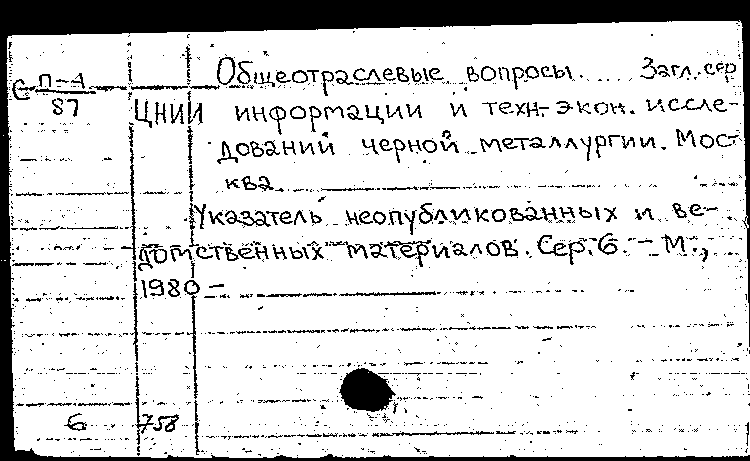 Общеотраслевые вопросы. Загл. сер
С П-4
87
ЦНИИ информации и техн.-экон. иссле-
дований черной металлургии. Мос-
ква.
Указатель неопубликованных и ве-
домственных материалов. Сер. 6. - М.,
1980 -
6 758